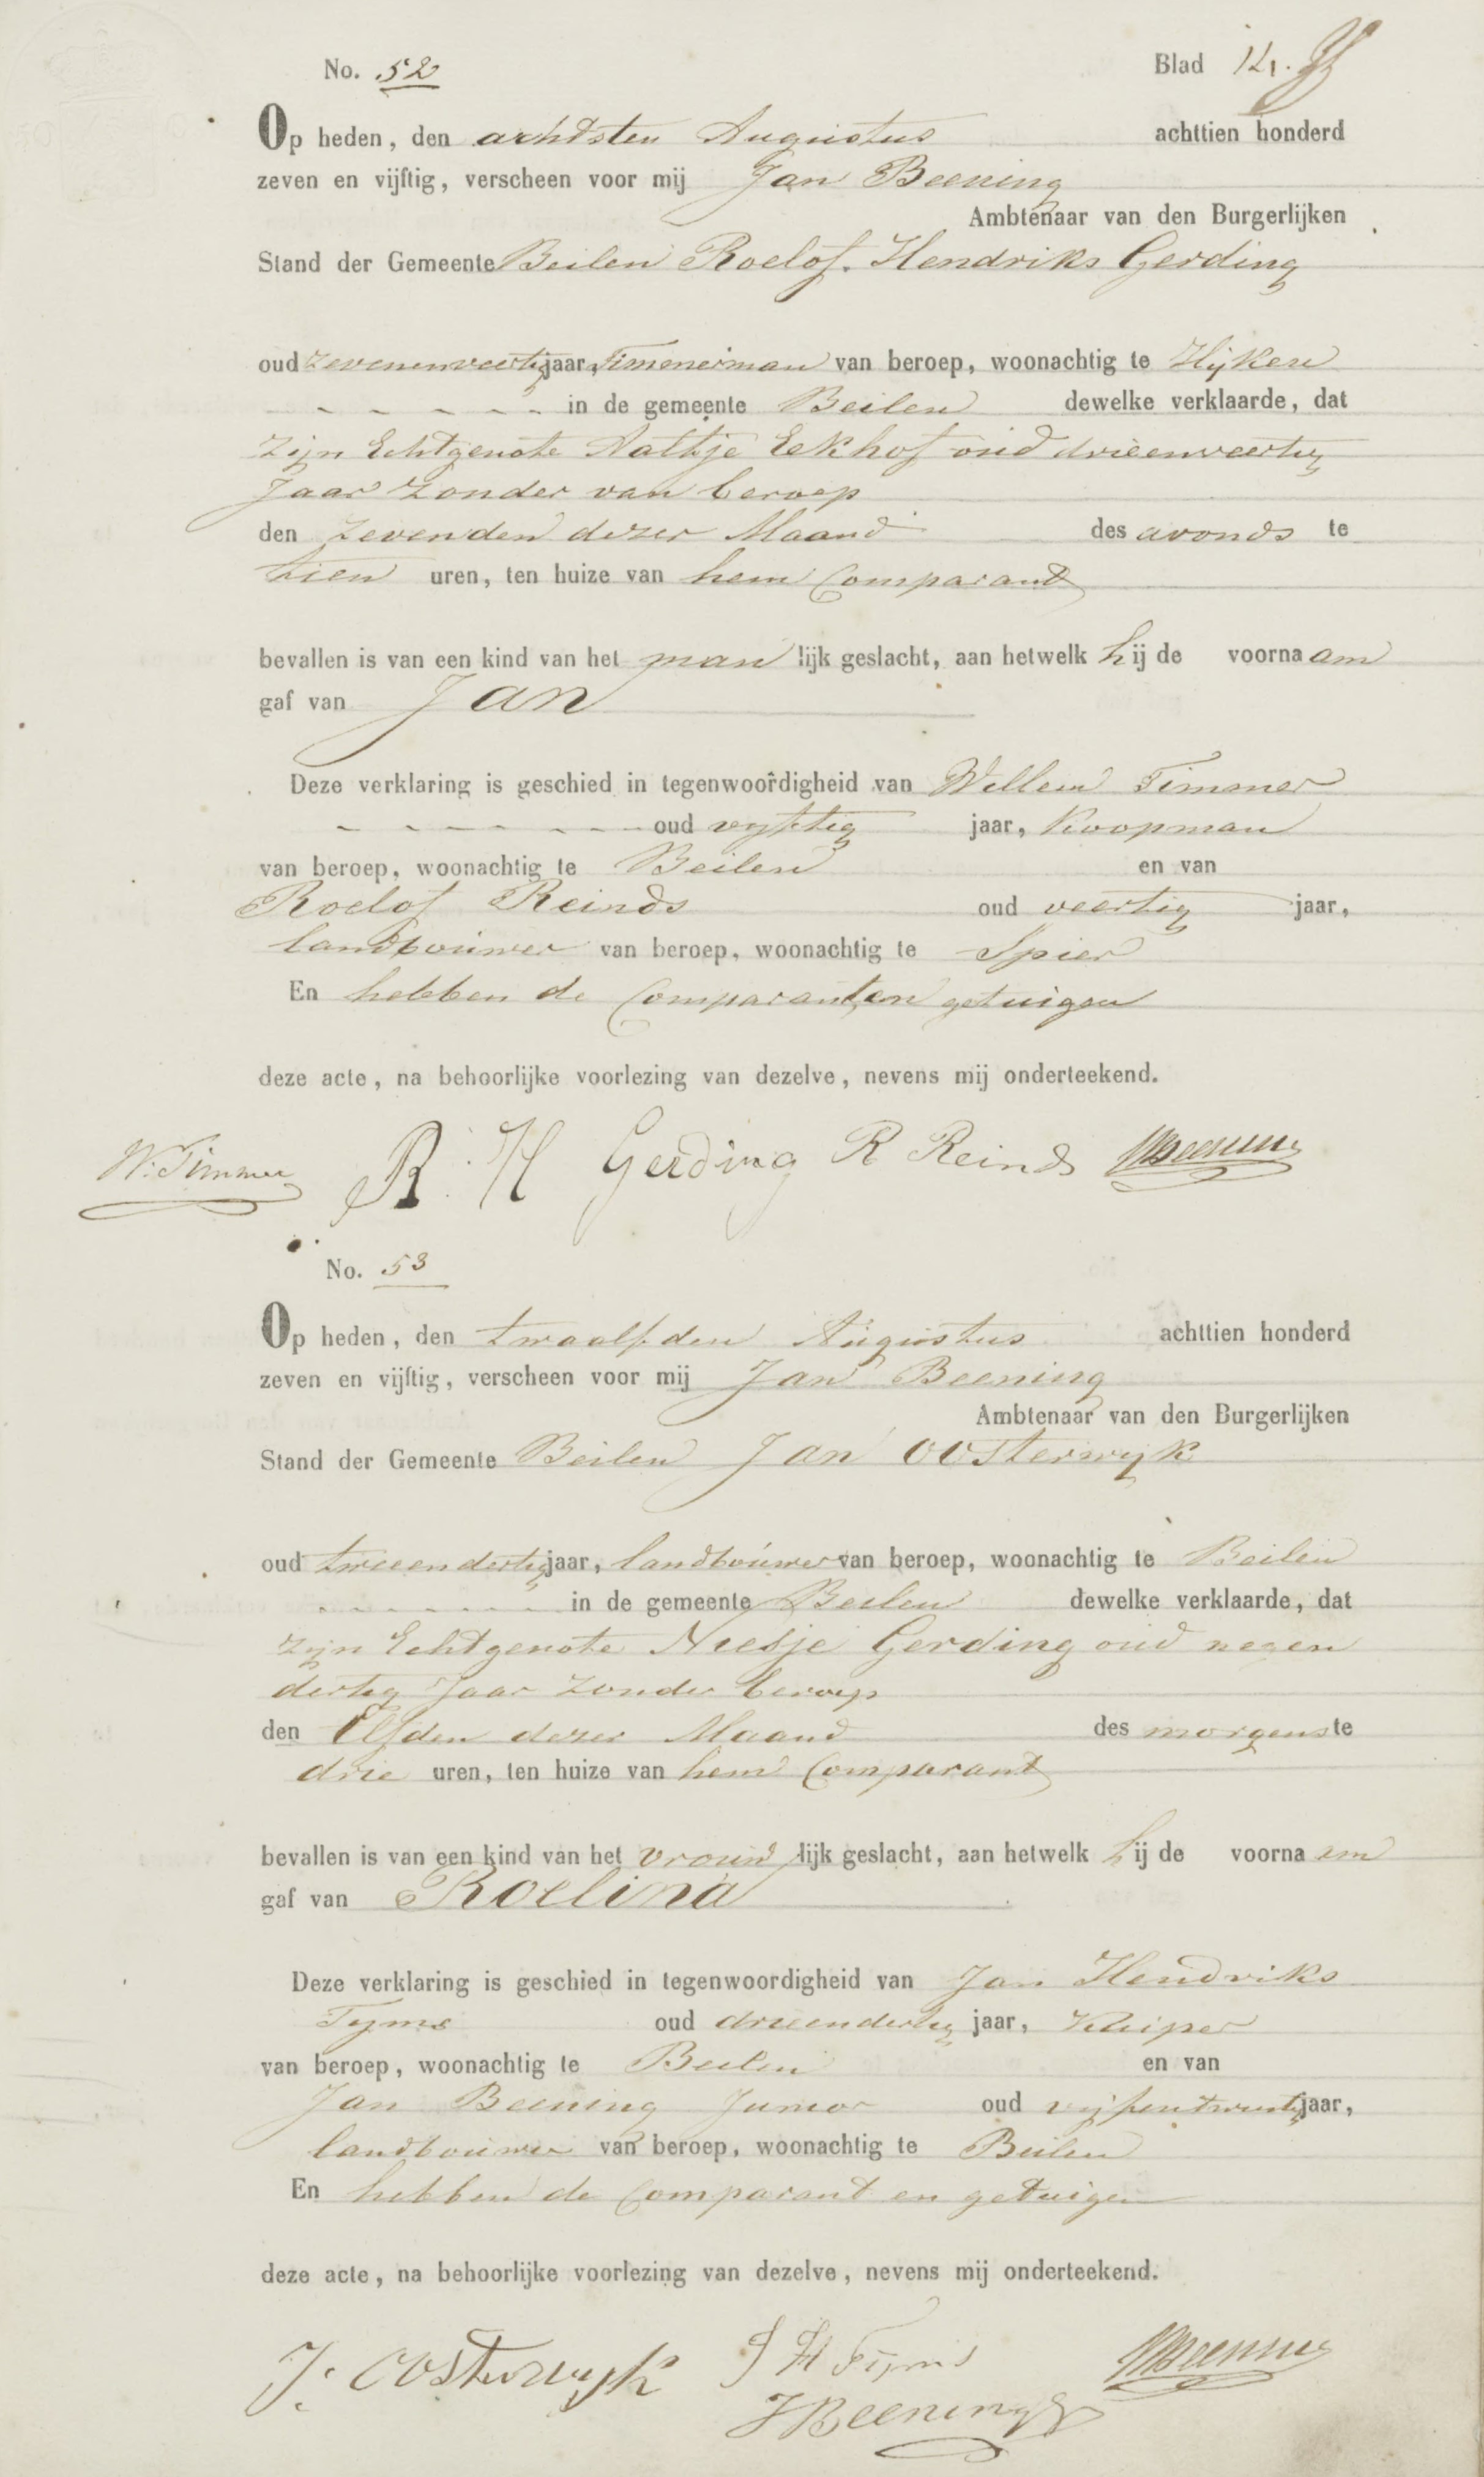 No. 52
Blad 14.
Op heden, den achtsten Augustus achttien honderd
zeven en vijftig, verscheen voor mij Jan Beening
Ambtenaar van den Burgerlijken
Stand der Gemeente Beilen Roelof Hendriks Gerding
oud zevenenveertig jaar, Timmerman van beroep, woonachtig te Hijken
in de gemeente Beilen dewelke verklaarde, dat
zijn Echtgenote Aaltje Eekhof oud drieenveertig
Jaar zonder van beroep
den zevenden dezer Maand des avonds te
tien uren, ten huize van hem Comparant
bevallen is van een kind van het man lijk geslacht, aan hetwelk hij de voorna am
gaf van Jan
Deze verklaring is geschied in tegenwoordigheid van Willem Timmer
oud vyftig jaar, Koopman
van beroep, woonachtig te Beilen en van
Roelof Reinds oud veertig jaar,
landbouwer van beroep, woonachtig te Spier
En hebben de Comparant en getuigen
deze acte, na behoorlijke voorlezing van dezelve, nevens mij onderteekend.
W. Timmer R. H Gerding R Reinds JBeening
No. 53
Op heden, den twaalfden Augustus achttien honderd
zeven en vijftig, verscheen voor mij Jan Beening
Ambtenaar van den Burgerlijken
Stand der Gemeente Beilen Jan Oosterwijk
oud tweeendertig jaar, landbouwer van beroep, woonachtig te Beilen
in de gemeente Beilen dewelke verklaarde, dat
zijn Echtgenote Niesje Gerding oud negen
dertig Jaar zonder beroep
den Elfden dezer Maand des morgens te
drie uren, ten huize van hem Comparant
bevallen is van een kind van het vrouw lijk geslacht, aan hetwelk hij de voorna am
gaf van Roelina
Deze verklaring is geschied in tegenwoordigheid van Jan Hendriks
Tyms oud drieendertig jaar, Kuiper
van beroep, woonachtig te Beilen en van
Jan Beening Junior oud vijfentwintig jaar,
landbouwer van beroep, woonachtig te Beilen
En hebben de Comparant en getuigen
deze acte, na behoorlijke voorlezing van dezelve, nevens mij onderteekend.
J. Oosterwyk J H Tijms JBeening
JBeening